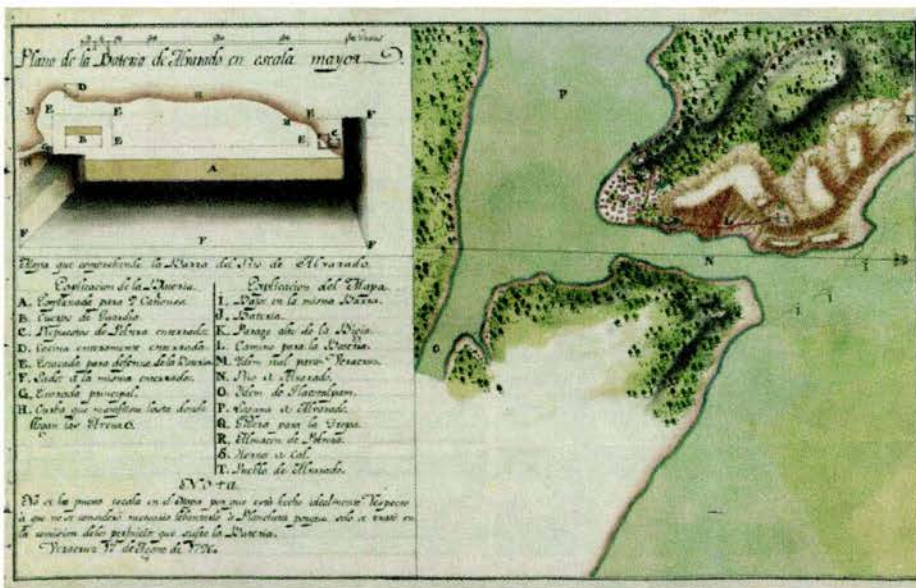 Plano de la Bateria de Alvarado en escala mayor
Mapa que comprehende la Barra del Rio de Alvarado.
Explicacion de la Bateria.
A. Explanada para 9 Cañones.
B. Cuerpo de Guardia.
C. Repuestos de Polvora enterrados.
D. Cocina enteramente enterrada.
E. Estacada para defensa de la Bateria.
F. a la misma enterrada.
G. Entrada principal.
H. Curba que manifiesta hasta donde
llegan las Arenas.
Explicacion del Mapa.
I. Bajos en la misma Barra.
J. Bateria.
K. Parage de la Bigia.
L. Camino para la Bateria.
M. Idem real para Veracruz.
N. Rio de Alvarado.
O. Idem de Tlacotalpam.
P. Laguna de Alvarado.
Q. Galera para la Tropa.
R. Almacen de Polvora.
S. Hornos de Cal.
T. Pueblo de Alvarado.
Nota
No se ha puesto escala en el Mapa por que está hecho idealmente respecto
à que no se consideró necesario lebantarlo de Plancheta porque solo se trató en
la comision de los que sufre la Bateria.
Veracruz de de
D
H
E
E
E
F
B
E
E
C
G
A
F
F
F
P
N
O
I